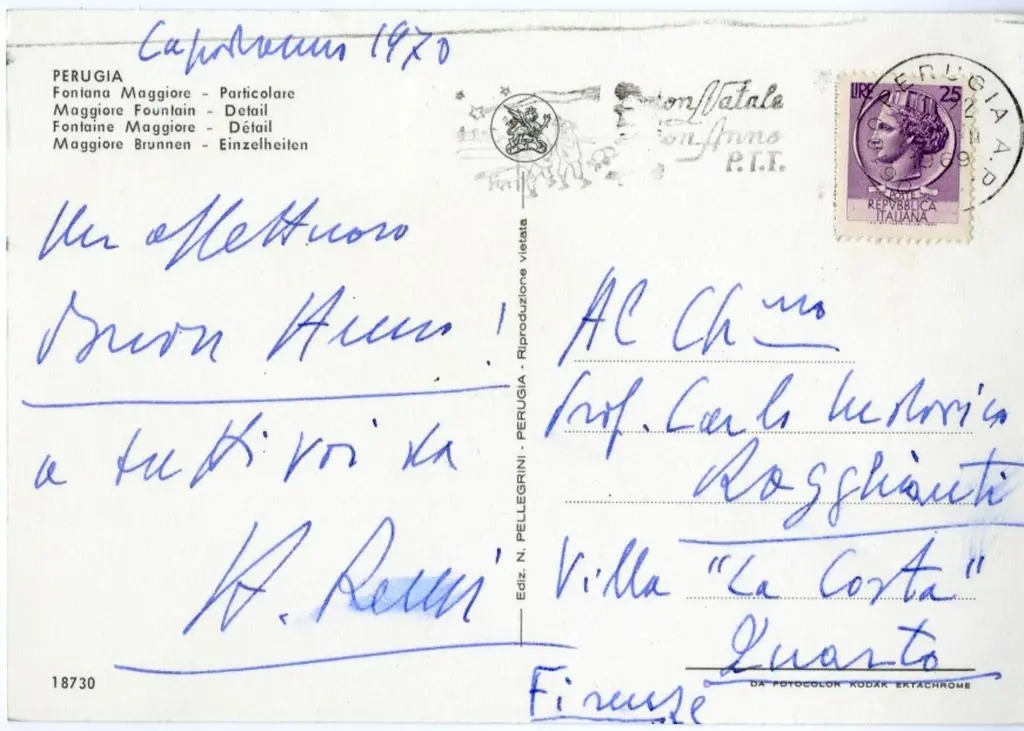 Capodanno 1970
PERUGIA
Fontana Maggiore - Particolare
Maggiore Fountain - Detail
Fontaine Maggiore - Détail
Maggiore Brunnen - Einzelheiten
Buon Natale
Buon Anno
P.T.T.
PERUGIA A.P
1969
LIRE 25
POSTE
REPVBBLICA
ITALIANA
Un affettuoso
Buon Anno!
a tutti voi da
Ediz. N. PELLEGRINI - PERUGIA - Riproduzione vietata
Al Ch mo
Prof. Carlo Ludovico
Ragghianti
Villa "La Costa"
Quarto
Firenze
18730
DA FOTOCOLOR KODAK EKTACHROME